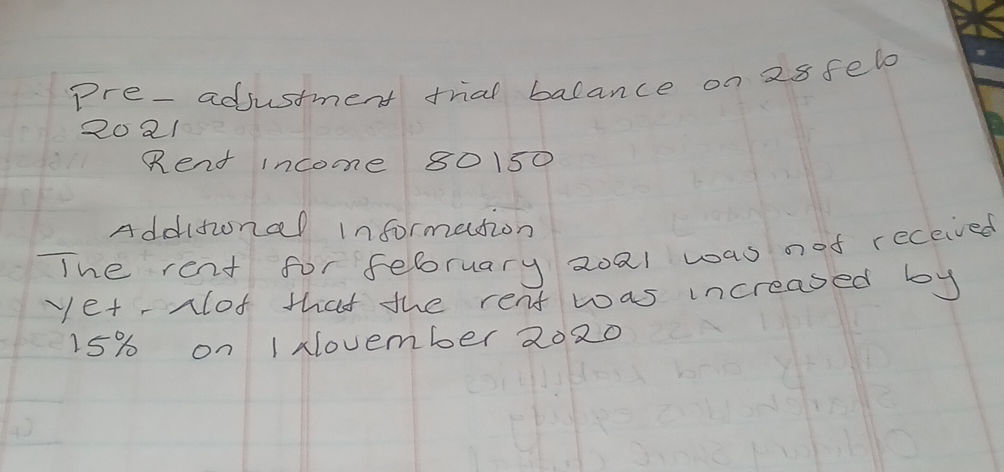 Pre - adjustment trial balance on 28 feb
2021
Rent income 80150
Additional information
The rent for february 2021 was not received
yet. Not that the rent was increased by
15% on 1 November 2020